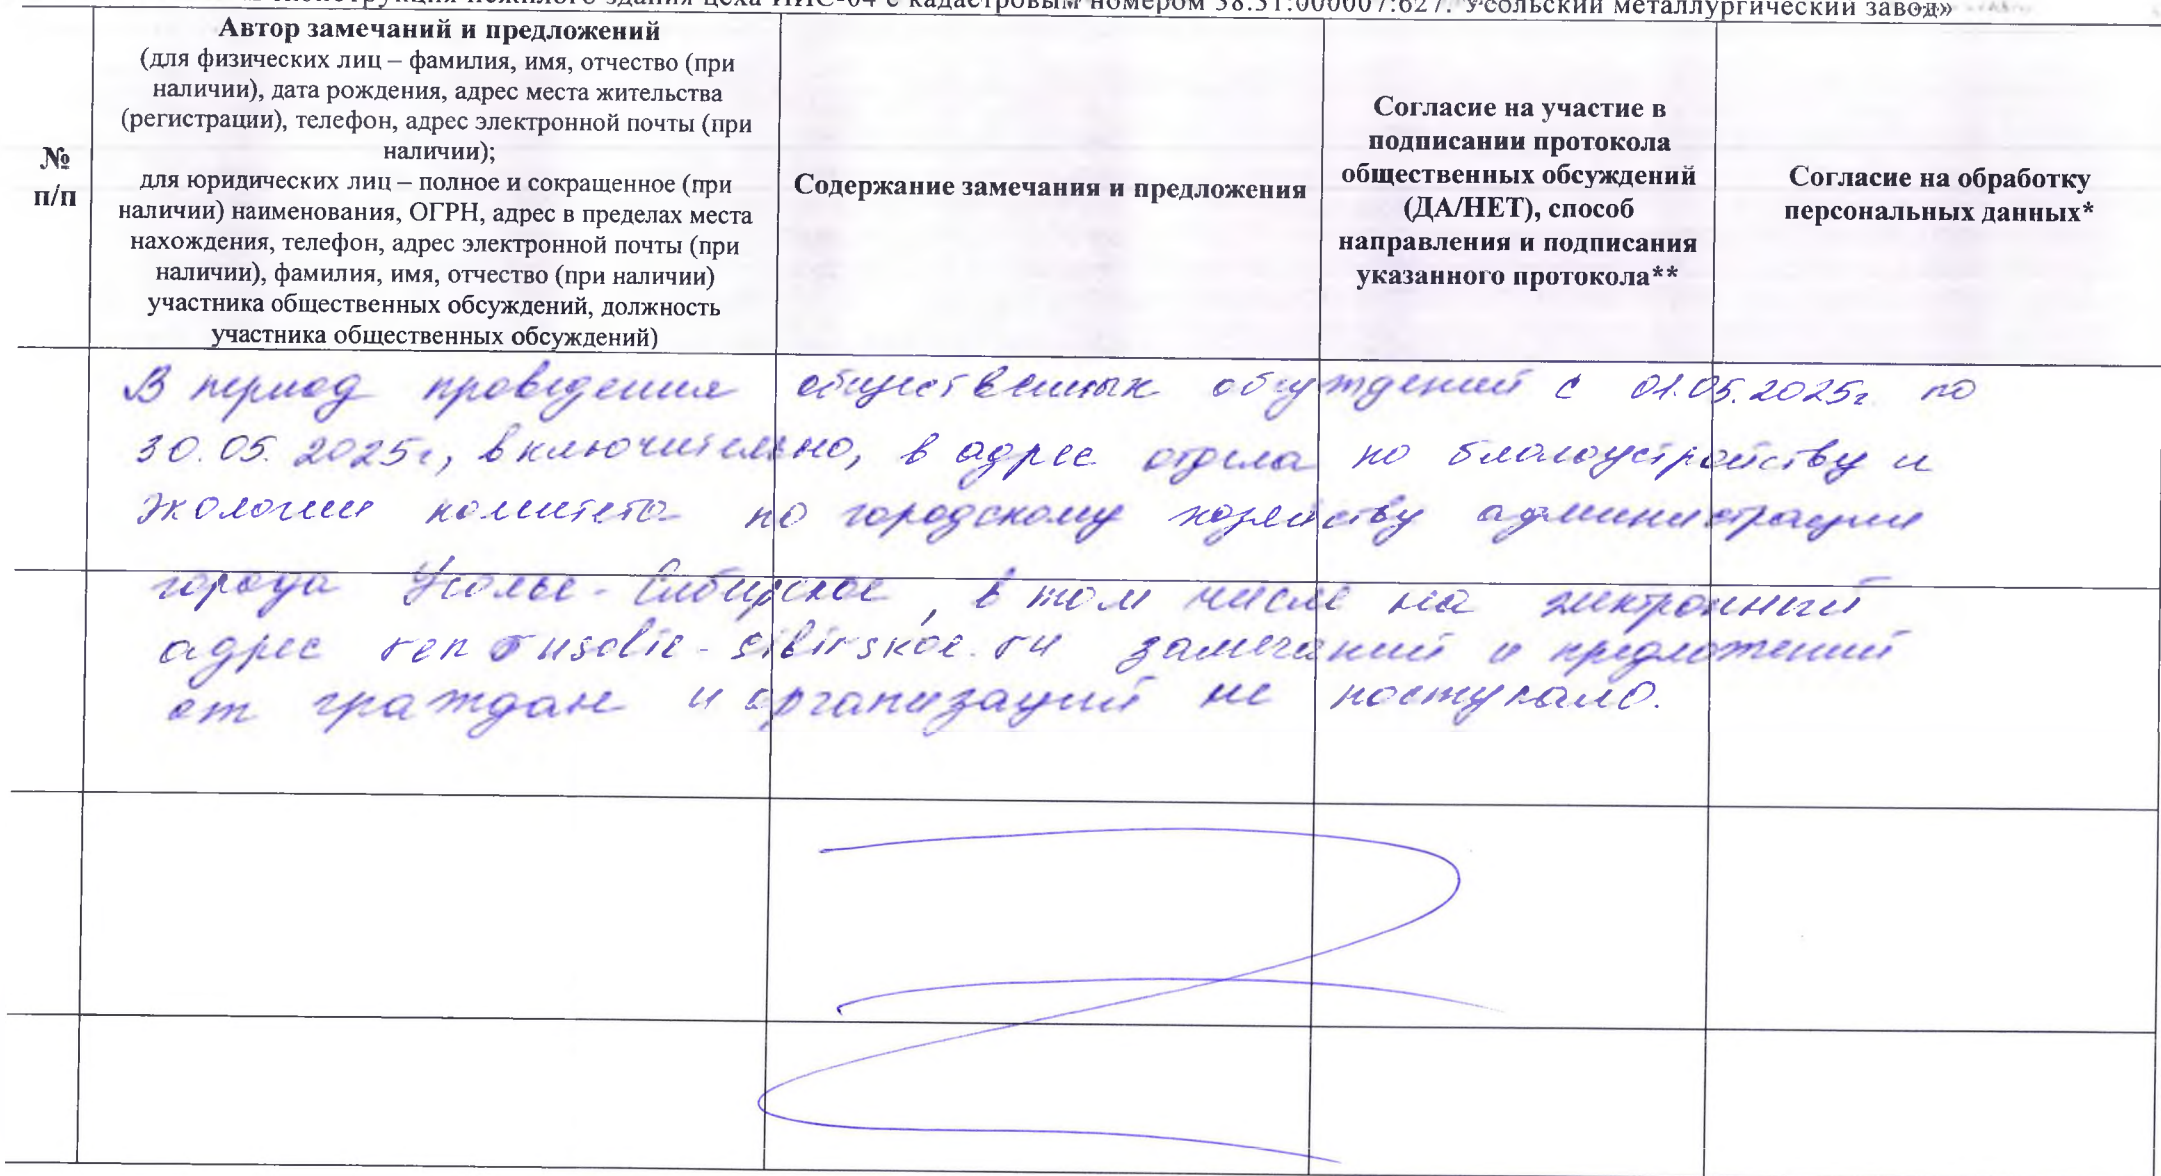 нежилого здания цеха ИИС-04 с кадастровым номером 38:31:000007:627. Усольский металлургический завод»
№ п/п
Автор замечаний и предложений
(для физических лиц – фамилия, имя, отчество (при
наличии), дата рождения, адрес места жительства
(регистрации), телефон, адрес электронной почты (при
наличии);
для юридических лиц – полное и сокращенное (при
наличии) наименования, ОГРН, адрес в пределах места
нахождения, телефон, адрес электронной почты (при
наличии), фамилия, имя, отчество (при наличии)
участника общественных обсуждений, должность
участника общественных обсуждений)
Содержание замечания и предложения
Согласие на участие в
подписании протокола
общественных обсуждений
(ДА/НЕТ), способ
направления и подписания
указанного протокола**
Согласие на обработку
персональных данных*
В период проведения общественных обсуждений с 01.05.2025г по
30.05.2025г, включительно, в адрес отдела по благоустройству и
экологии комитета по городскому хозяйству администрации
города Усолье-Сибирское, в том числе на электронный
адрес usolie-sibirskoe.ru замечаний и предложений
от граждан и организаций не поступало.